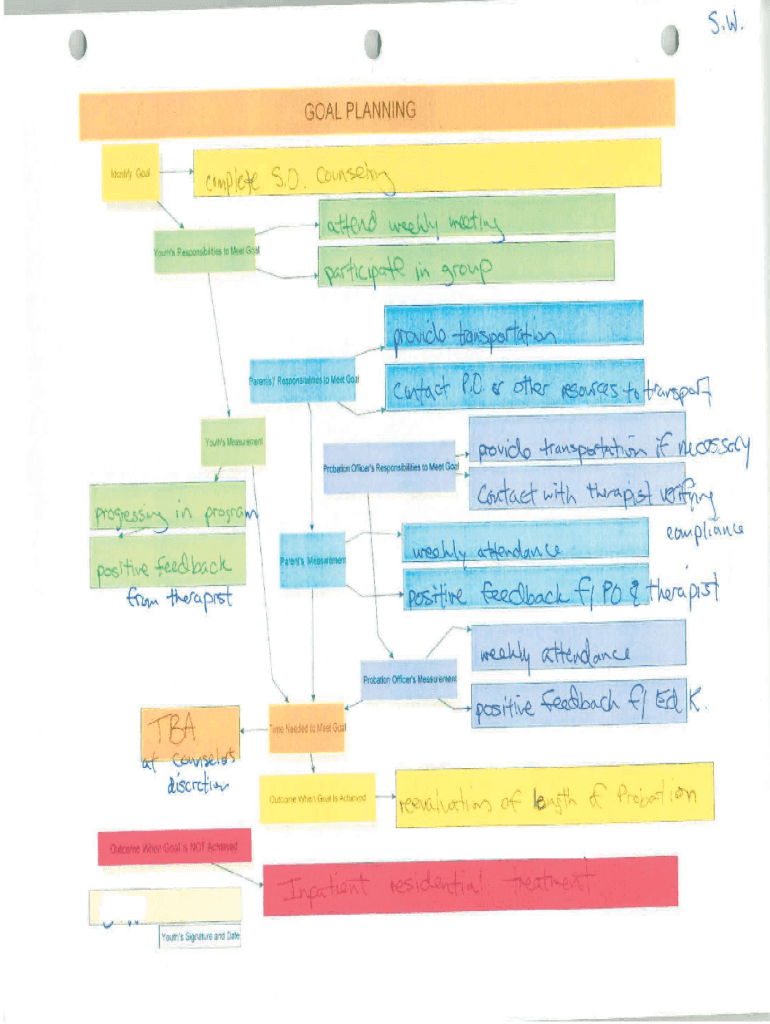 S.W.
GOAL PLANNING
Monthly Goal
complete S.O. Counseling
attend weekly meeting
Youth's Responsibilities to Meet Goal
participate in group
provide transportation
Parents' Responsibilities to Meet Goal
Contact P.O. or other resources to transport
Youth's Measurement
provide transportation if necessary
Probation Officer's Responsibilities to Meet Goal
Contact with therapist verifying
compliance
progressing in program
positive feedback
from therapist
weekly attendance
Parent's Measurement
positive feedback f/ PO & therapist
weekly attendance
Probation Officer's Measurement
positive feedback f/ Ed K.
TBA
at counselor's
discretion
Time Needed to Meet Goal
Outcome When Goal Is Achieved
reevaluation of length of Probation
Outcome When Goal is NOT Achieved
Inpatient residential treatment
Youth's Signature and Date